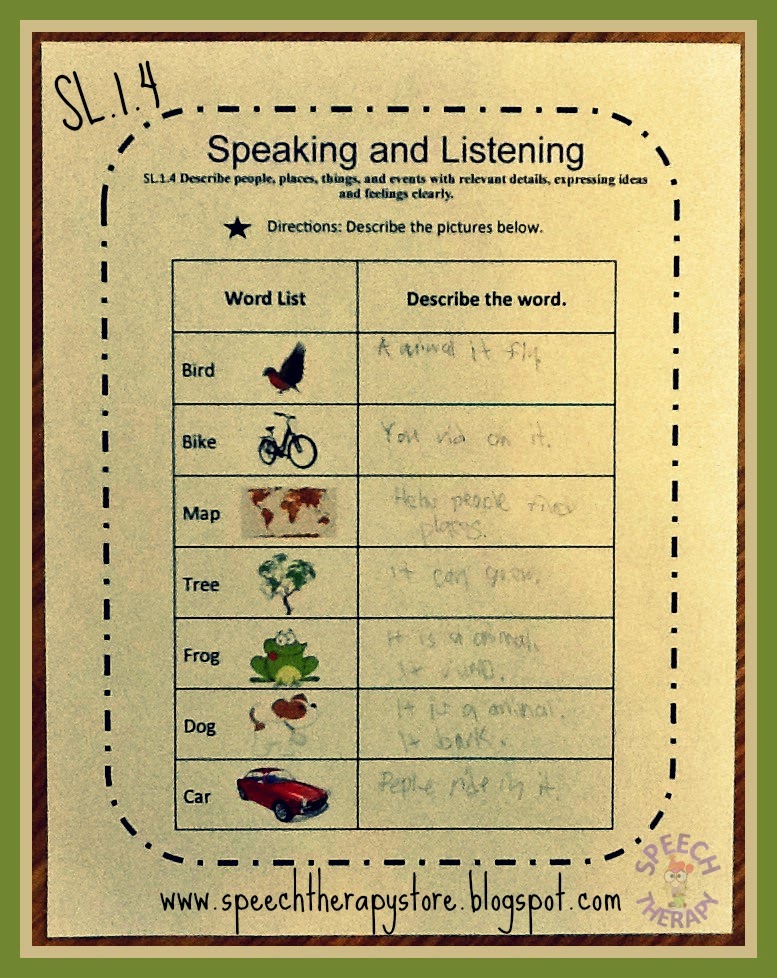 SL.1.4
Speaking and Listening
SL.1.4 Describe people, places, things, and events with relevant details, expressing ideas
and feelings clearly.
Directions: Describe the pictures below.
Word List Describe the word.
Bird A animal it fly
Bike You rid on it.
Map Help people find
places.
Tree It can grow.
Frog It is a animal.
It jump.
Dog It is a animal.
It bark.
Car Peple ride in it.
SPEECH
THERAPY
www.speechtherapystore.blogspot.com